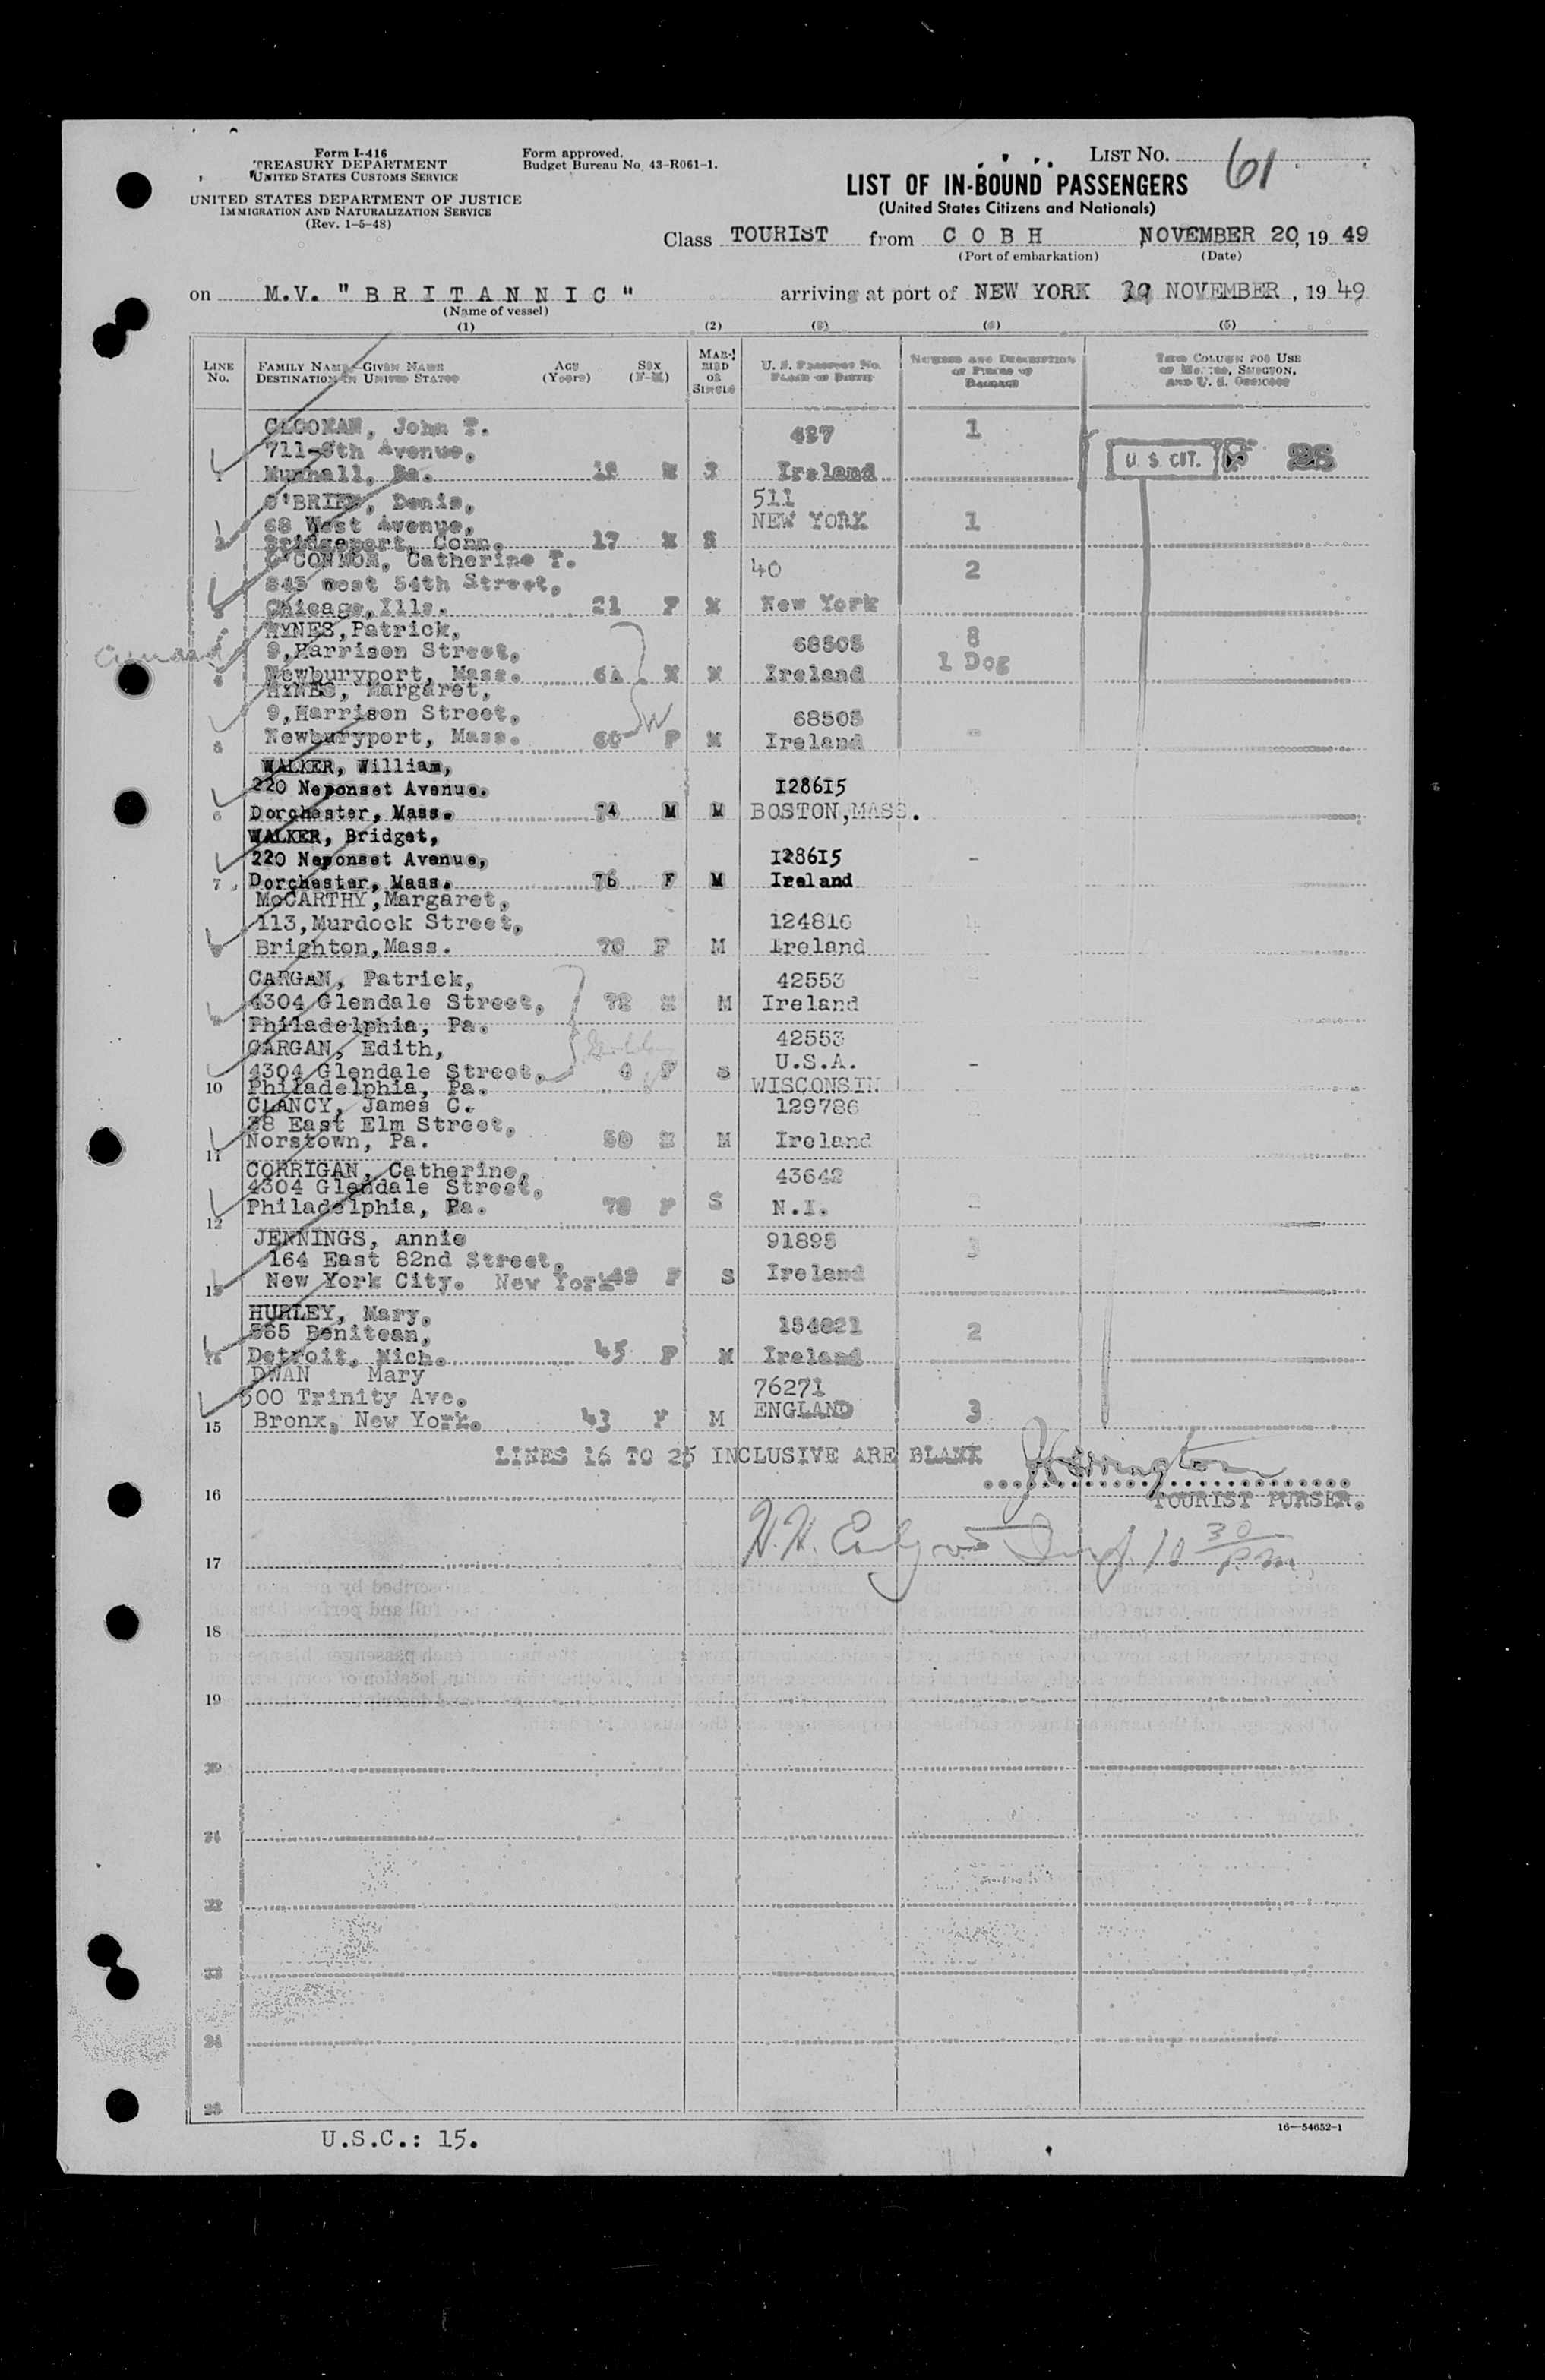 Form I-416
TREASURY DEPARTMENT
UNITED STATES CUSTOMS SERVICE
UNITED STATES DEPARTMENT OF JUSTICE
IMMIGRATION AND NATURALIZATION SERVICE
(Rev. 1-5-48)
Form approved.
Budget Bureau No. 43-R061-1.
LIST NO. 61
LIST OF IN-BOUND PASSENGERS
(United States Citizens and Nationals)
Class TOURIST from C O B H NOVEMBER 20, 19 49
(Port of embarkation) (Date)
on M.V. "B R I T A N N I C" arriving at port of NEW YORK NOVEMBER, 19 49
(Name of vessel)
(1) (2) (3) (4) (5)
LINE NO.
FAMILY NAME—GIVEN NAME
DESTINATION IN UNITED STATES
AGE (Years)
SEX (F-M)
MARRIED OR SINGLE
U. S. PASSPORT NO.
PLACE OF BIRTH
NUMBER AND DESCRIPTION OF PIECES OF BAGGAGE
THIS COLUMN FOR USE OF MASTER, SURGEON, AND U. S. OFFICERS
CLOONAN, John T. 1
711-8th Avenue,
Munhall, Pa. Ireland
U. S. CIT.
O'BRIEN, Denis, 511
68 West Avenue, NEW YORK 1
2 Bridgeport, Conn. 17 M S
O'CONNOR, Catherine T. 40 2
845 west 54th Street,
Chicago, Ills. 21 F M New York
HYNES, Patrick, 8
9, Harrison Street, 68505 1 Dog
Newburyport, Mass. M M Ireland
HYNES, Margaret,
9, Harrison Street, 68505
Newburyport, Mass. 60 F M Ireland -
W
WALKER, William,
220 Neponset Avenue. 128615
6 Dorchester, Mass. 74 M M BOSTON, MASS.
WALKER, Bridget,
220 Neponset Avenue, 128615 -
7 Dorchester, Mass. 76 F M Ireland
McCARTHY, Margaret,
113, Murdock Street, 124816
Brighton, Mass. 70 F M Ireland
CARGAN, Patrick, 42553
4304 Glendale Street, 72 M M Ireland
Philadelphia, Pa.
CARGAN, Edith, 42553
4304 Glendale Street, F S U.S.A. -
10 Philadelphia, Pa. WISCONSIN
CLANCY, James C. 129786
38 East Elm Street,
11 Norstown, Pa. M M Ireland
CORRIGAN, Catherine, 43642
4304 Glendale Street,
12 Philadelphia, Pa. F S N.I.
JENNINGS, Annie 91895
164 East 82nd Street,
13 New York City. New York F S Ireland
HURLEY, Mary, 134821
565 Benitean, 2
14 Detroit, Mich. 45 F M Ireland
DWAN Mary 76271
500 Trinity Ave. ENGLAND
15 Bronx, New York. 43 F M 3
LINES 16 TO 25 INCLUSIVE ARE BLANK
TOURIST PURSER.
16
17
18
19
20
21
22
23
24
25
U.S.C.: 15.
16—54652-1